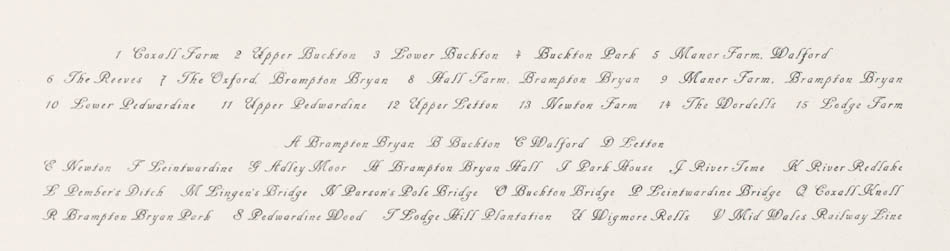 1 Coxall Farm 2 Upper Buckton 3 Lower Buckton 4 Buckton Park 5 Manor Farm, Walford
6 The Reeves 7 The Oxford, Brampton Bryan 8 Hall Farm, Brampton Bryan 9 Manor Farm, Brampton Bryan
10 Lower Pedwardine 11 Upper Pedwardine 12 Upper Letton 13 Newton Farm 14 The Wordells 15 Lodge Farm
A Brampton Bryan B Buckton C Walford D Letton
E Newton F Leintwardine G Adley Moor H Brampton Bryan Hall I Park House J River Teme K River Redlake
L Pember's Ditch M Lingen's Bridge N Parson's Pole Bridge O Buckton Bridge P Leintwardine Bridge Q Coxall Knoll
R Brampton Bryan Park S Pedwardine Wood T Lodge Hill Plantation U Wigmore Rolls V Mid Wales Railway Line